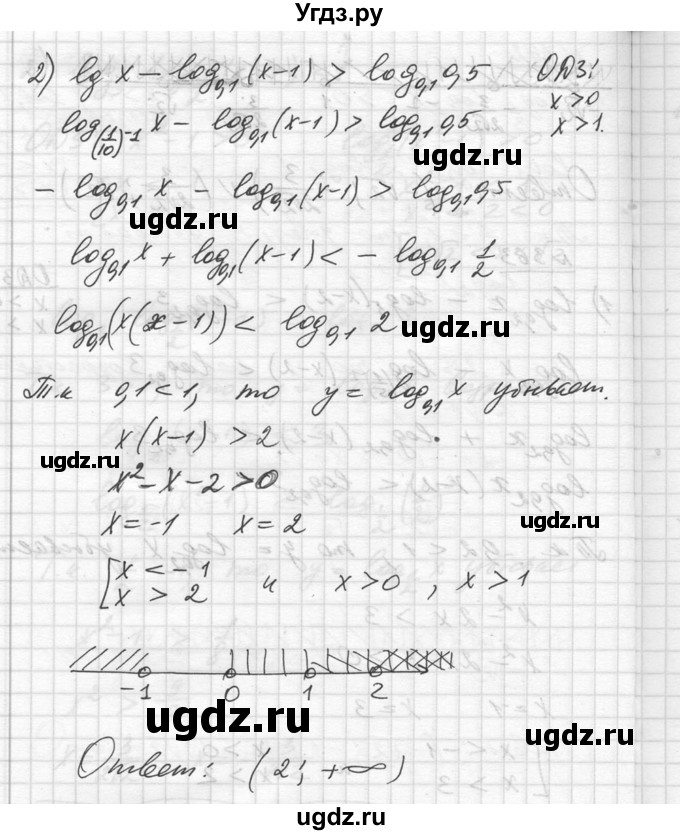 Угдз.ру
2) lg x − log₀,₁(x−1) > log₀,₁ 0,5 ОДЗ:
x>0
log_(1/10)⁻¹ x − log₀,₁(x−1) > log₀,₁ 0,5 x>1.
− log₀,₁ x − log₀,₁(x−1) > log₀,₁ 0,5
ugdz.ru ugdz.ru
log₀,₁ x + log₀,₁(x−1) < − log₀,₁ 1/2
log₀,₁(x(x−1)) < log₀,₁ 2 ugdz.ru
Т.к 0,1<1, то y = log₀,₁ x убывает.
x(x−1) > 2
ugdz.ru
x² − x − 2 > 0
x = −1 x = 2 ugdz.ru
[x < −1
x > 2 и x>0 , x>1
−1 0 1 2
ugdz.ru ugdz.ru
Ответ: (2; +∞)
ugdz.ru